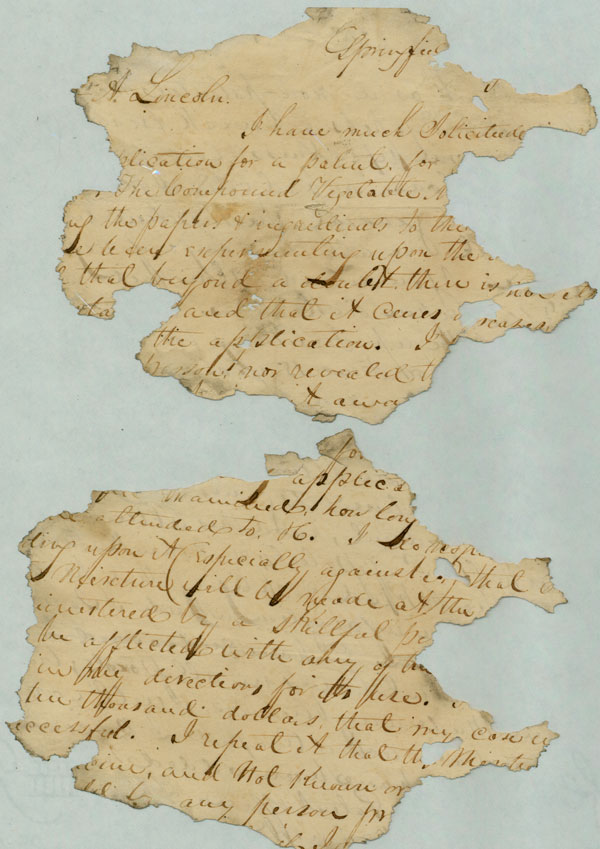 Springfiel
A. Lincoln.
I have much Solicitude
lication for a patent. for
The Compound Vegetable.
ng the papers & ingredients to the
been experimenting upon the
that beyond a doubt there is
and that it cures
the application. I
nor revealed t
it away
for
applica
how long
attended to. I
ting upon it (Especially against that
Mixture) will be made at the
inistered by a skillful pe
be afflicted with any of the
in my directions for its use.
ten thousand dollars, that my case
uccessful. I repeat it that the Mixtu
icine, and Not Known or
any person